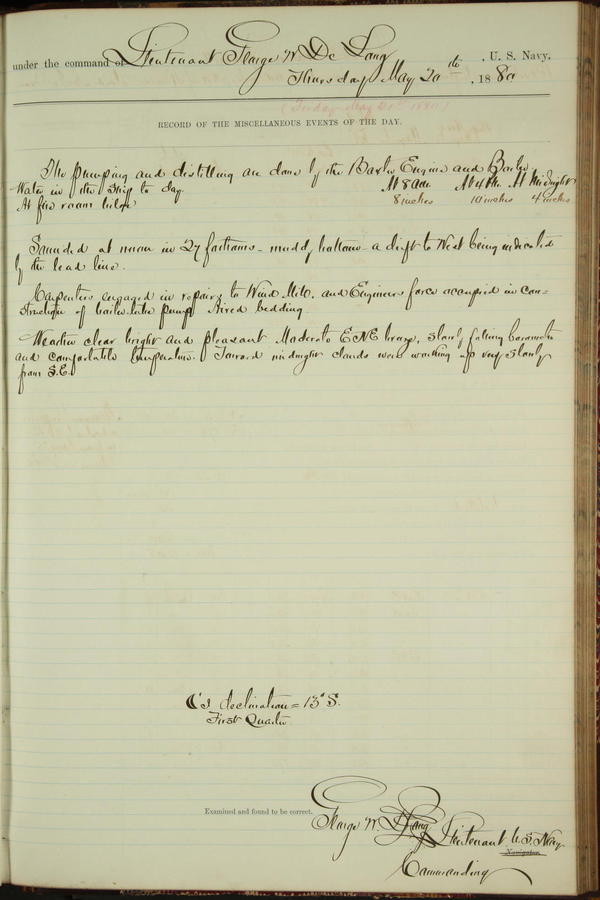 under the command of Lieutenant George W. De Long, U. S. Navy.
Thursday May 20th, 1880
(Friday May 21st 1880)
RECORD OF THE MISCELLANEOUS EVENTS OF THE DAY.
The pumping and distilling are done by the Baxter Engine and Boiler
Water in the ship to day. At 8 am. At 4 PM. At Midnight
At fire room bilge 8 inches 10 inches 4 inches
Sounded at noon in 27 fathoms - muddy bottom - a drift to West being indicated
by the lead line.
Carpenters engaged in repairs to Wind Mill, and Engineers force occupied in con=
struction of boiler tube pump. Aired bedding.
Weather clear bright and pleasant. Moderate ENE breeze, slowly falling barometer
and comfortable temperature. Toward midnight clouds were working up very slowly
from S.E.
☾'s declination = 13° S.
First Quarter.
Examined and found to be correct.
George W. De Long Lieutenant U.S. Navy
Navigator.
Commanding